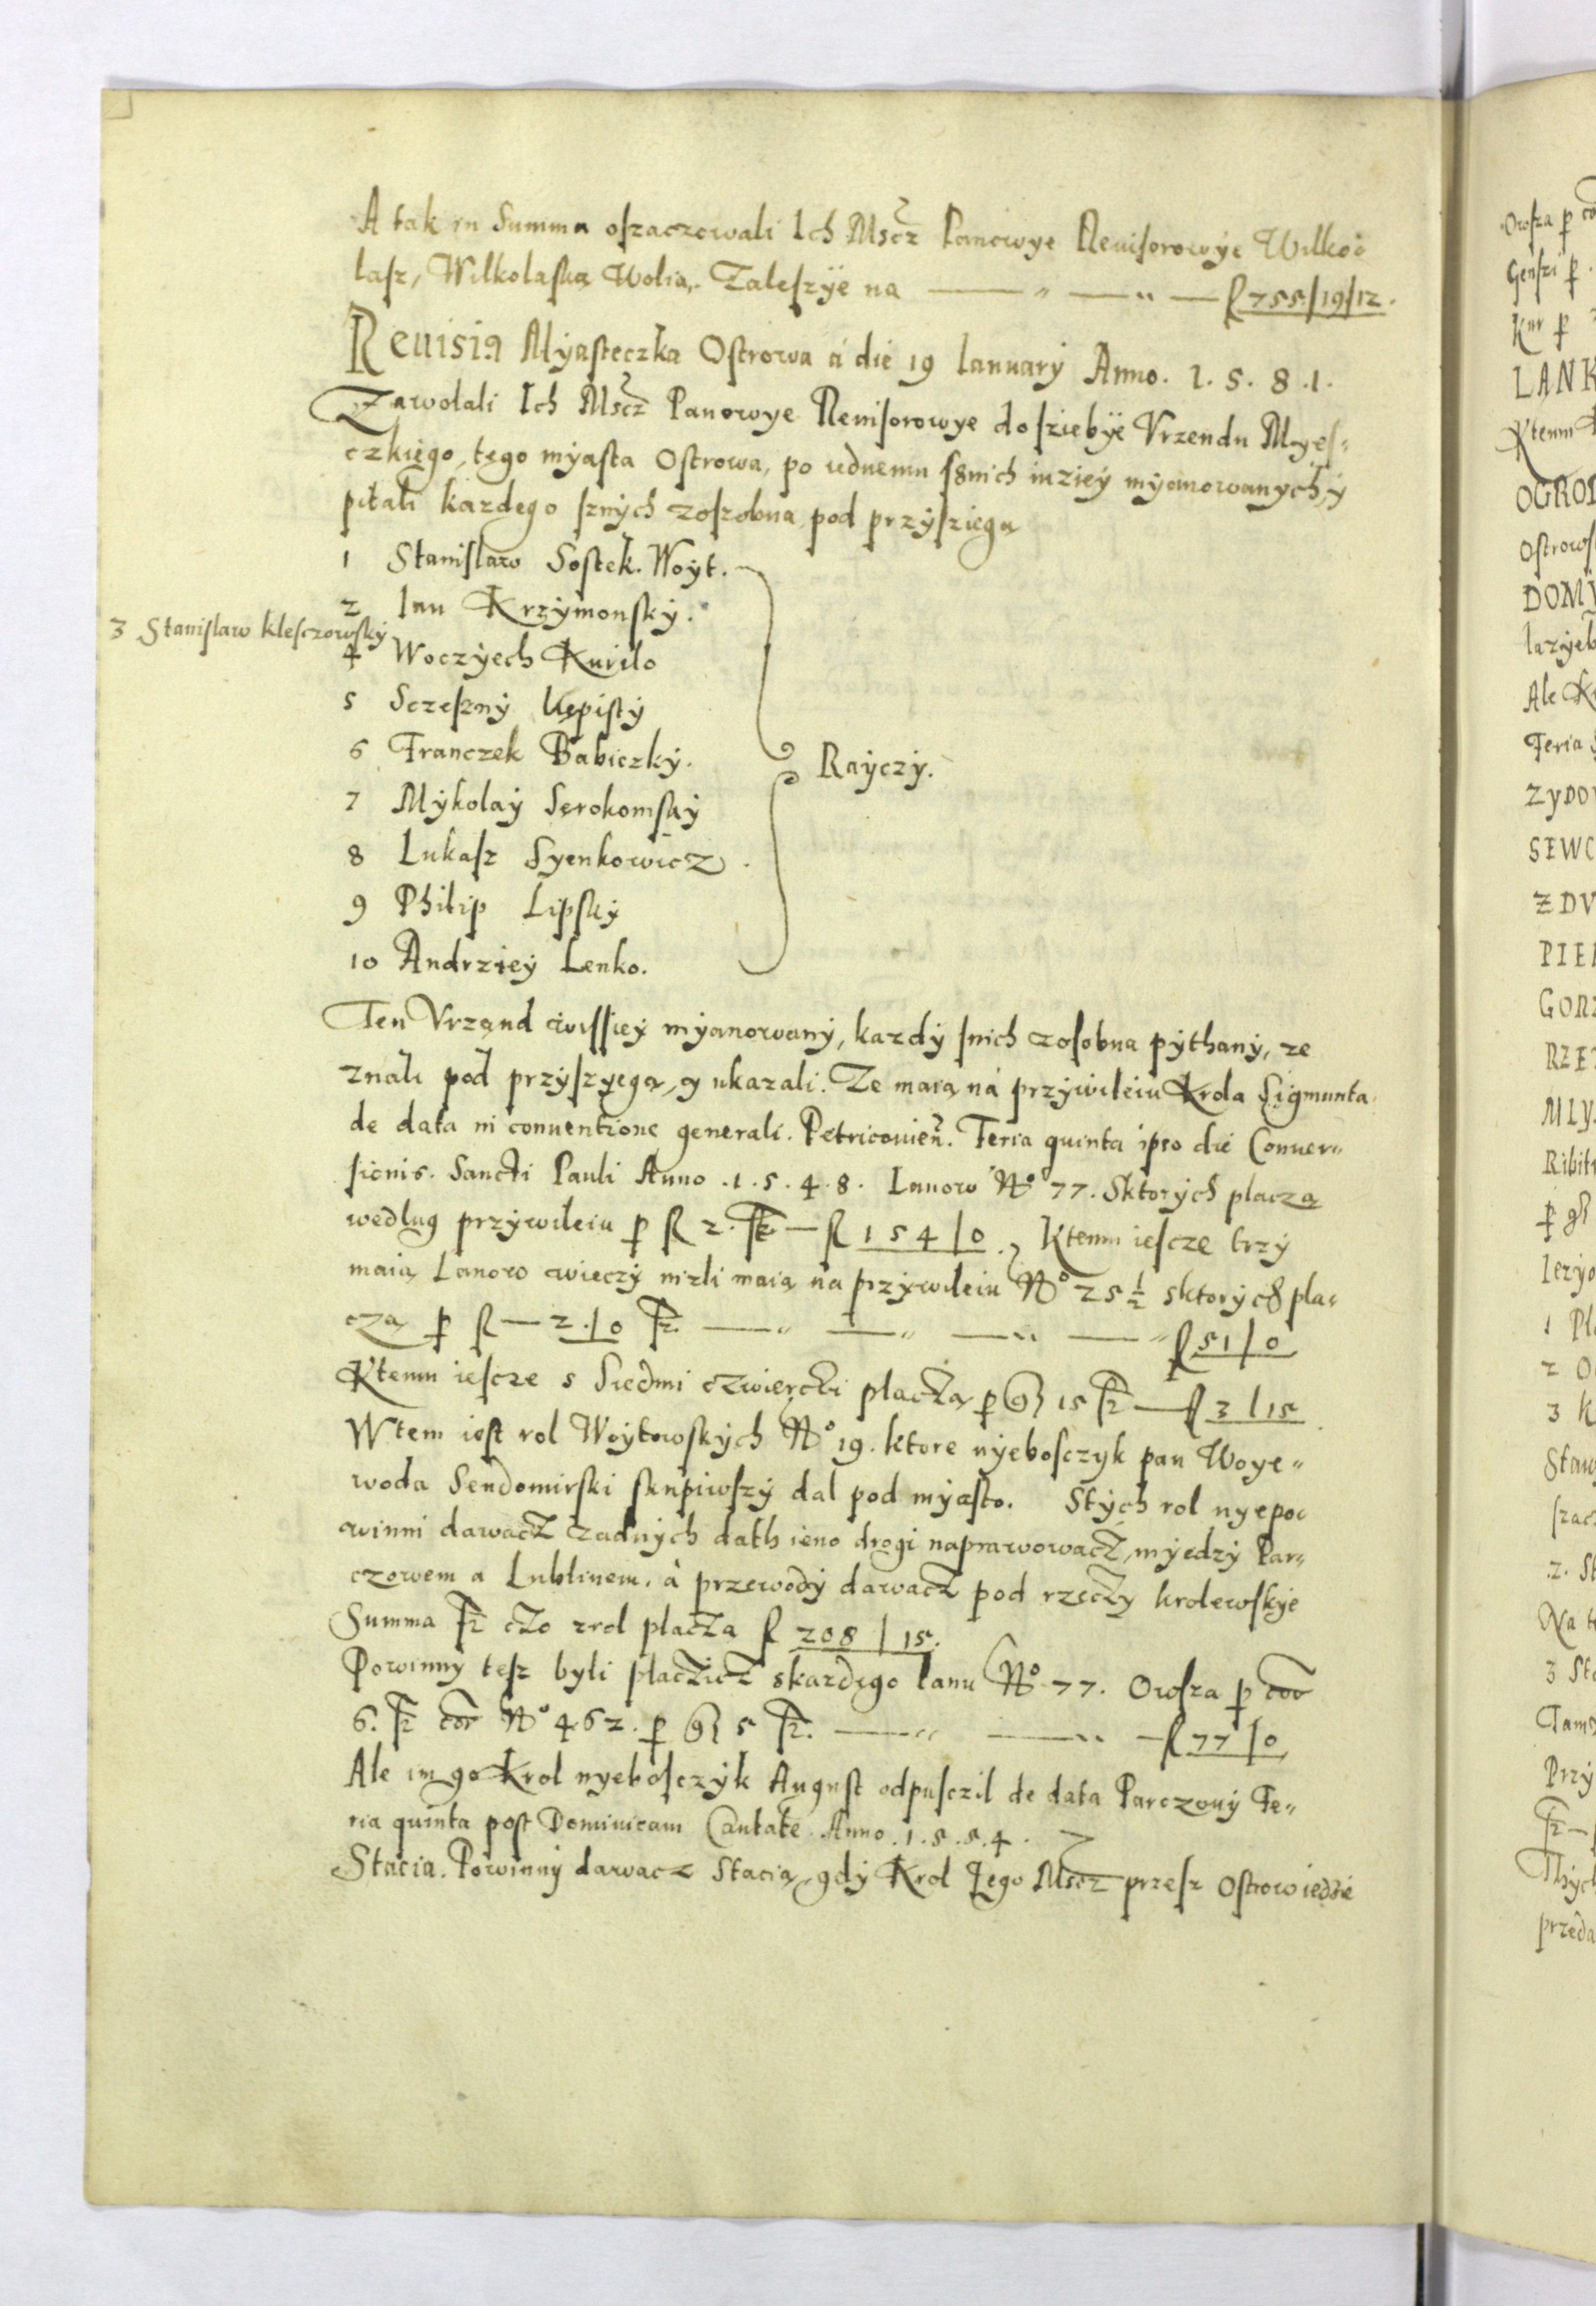 A tak in Summa oszaczowali Ich Mscz Panowye Reuisorowye Wilko
lasz, Wilkolaska Wolia, Zaleszÿe na — " — " — f 755/19/12.
Reuisia Myasteczka Ostrowa á die 19 Ianuarÿ Anno. 1. 5. 8. 1.
Zawolali Ich Mscz Panowye Reuisorowye do sziebÿe Vrzendu Myes-
czkiego, tego mÿasta Ostrowa, po iednemu snich mÿanowanych ÿ
pitali kazdego sznÿch zoszobna pod przÿsziegą
1 Stanislaw Sostek. Woÿt.
2 Ian Krzÿmonskÿ.
3 Stanislaw klesczowskÿ
4 Woczÿech Kurilo
5 Sczesznÿ Uępistÿ
6 Franczek Babiczkÿ.
7 Mÿkolaÿ Serokomskÿ
8 Lukasz Syenkowicz.
9 Philip Lipskÿ
10 Andrzieÿ Lenko.
Raÿczÿ.
Ten Vrząnd wissieÿ mÿanowanÿ, kazdÿ snich zosobna pÿthanÿ, ze
znali pod przÿszyegą, y ukazali. Ze maią ná przÿwileiu Krola Sigmunta
de data in conuentione generali. Petricouien. Feria quinta ipso die Conuer"
sionis. Sancti Pauli Anno .1.5.4.8. Lanow No 77. Sktorÿch placzą
według przÿwileiu p f 2. fz — f 154/0. Ktemu iescze trzÿ
maią Lanow wieczÿ nizli maią na przÿwileiu No 25 ½ sktorÿch pla-
czą p f — 2./0 fz — " — " — " — " f 51/0
Ktemu iescze s Siedmi czwiertzi placzą p g 15 fz — f 3/15
Wtem iest rol Woÿtowskÿch No 19. ktore nÿebosczyk pan Woye"
woda Sendomirski skupiwszÿ dal pod mÿasto. Stÿch rol nyepo
winni dawacz zadnÿch dath ieno drogi naprawowacz, mÿedzÿ Par"
czowem a Lublinem, à przewodÿ dawacz pod rzeczÿ krolewskÿe
Summa fz czo zrol placza f 208/15.
Powinnÿ tesz byli placzicz skazdego lanu No 77. Owsza p cor
6. fz cor No 462. p g 5 fz. — " — " — f 77/0
Ale im go Krol nyebosczÿk August odpusczil de data Parczouÿ Fe"
ria quinta post Dominicam Cantate Anno .1.5.5.4.
Stacia. Powinnÿ dawacz Stacią, gdÿ Krol Jego Mscz przesz Ostrow iedzie